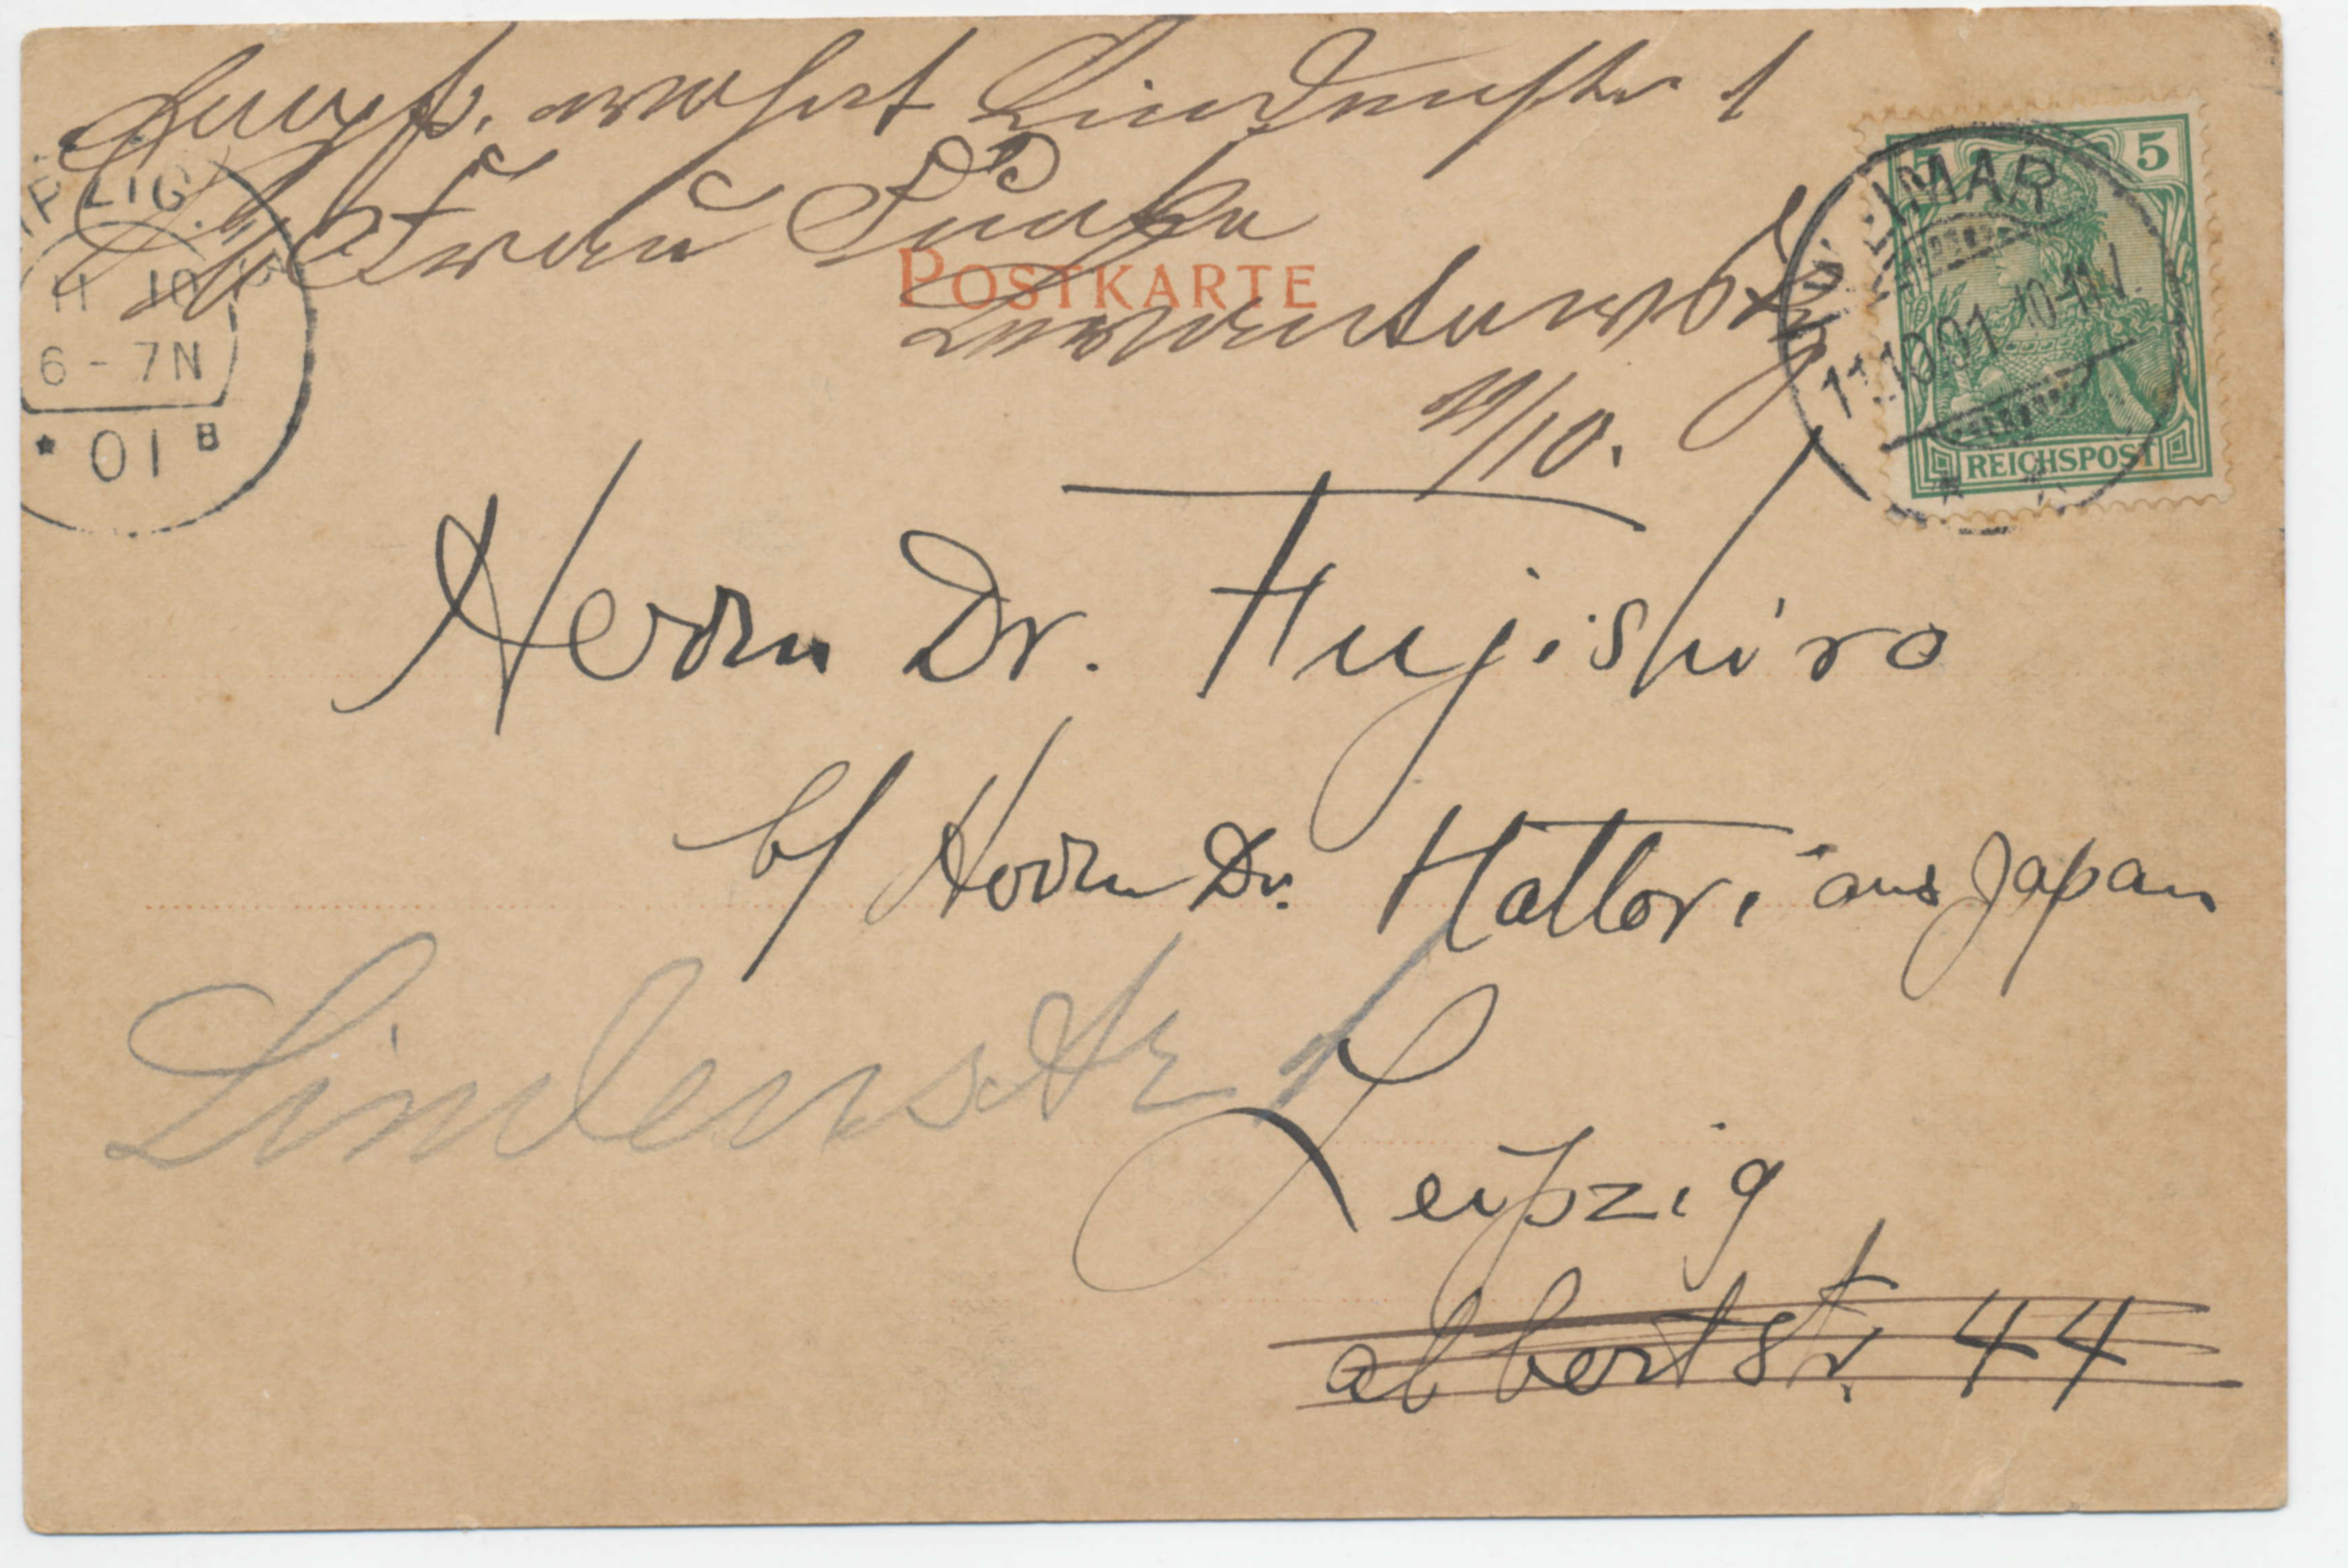 wohnt Lindenstr 1
b/ Frau
POSTKARTE
11/10.
LEIPZIG
11 10
6-7N
* 01 B
WEIMAR
11.10.01 10-11V.
5
REICHSPOST
Herrn Dr. Fujishiro
b/ Herrn Dr. Hattori aus Japan
Lindenstr 1
Leipzig
albertstr. 44